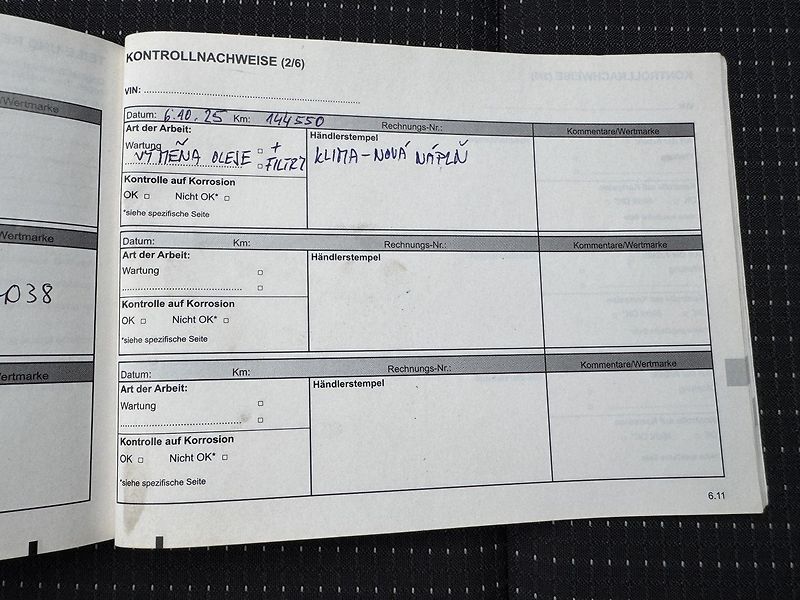 KONTROLLNACHWEISE (2/6)
VIN:
Datum: 6.10.25 Km: 144550 Rechnungs-Nr.: Kommentare/Wertmarke
Art der Arbeit: Händlerstempel
Wartung
VÝMĚŇA OLEJE + FILTRY KLIMA-NOVÁ NÁPLŇ
Kontrolle auf Korrosion
OK Nicht OK*
*siehe spezifische Seite
Datum: Km: Rechnungs-Nr.: Kommentare/Wertmarke
Art der Arbeit: Händlerstempel
Wartung
Kontrolle auf Korrosion
OK Nicht OK*
*siehe spezifische Seite
Datum: Km: Rechnungs-Nr.: Kommentare/Wertmarke
Art der Arbeit: Händlerstempel
Wartung
Kontrolle auf Korrosion
OK Nicht OK*
*siehe spezifische Seite
6.11